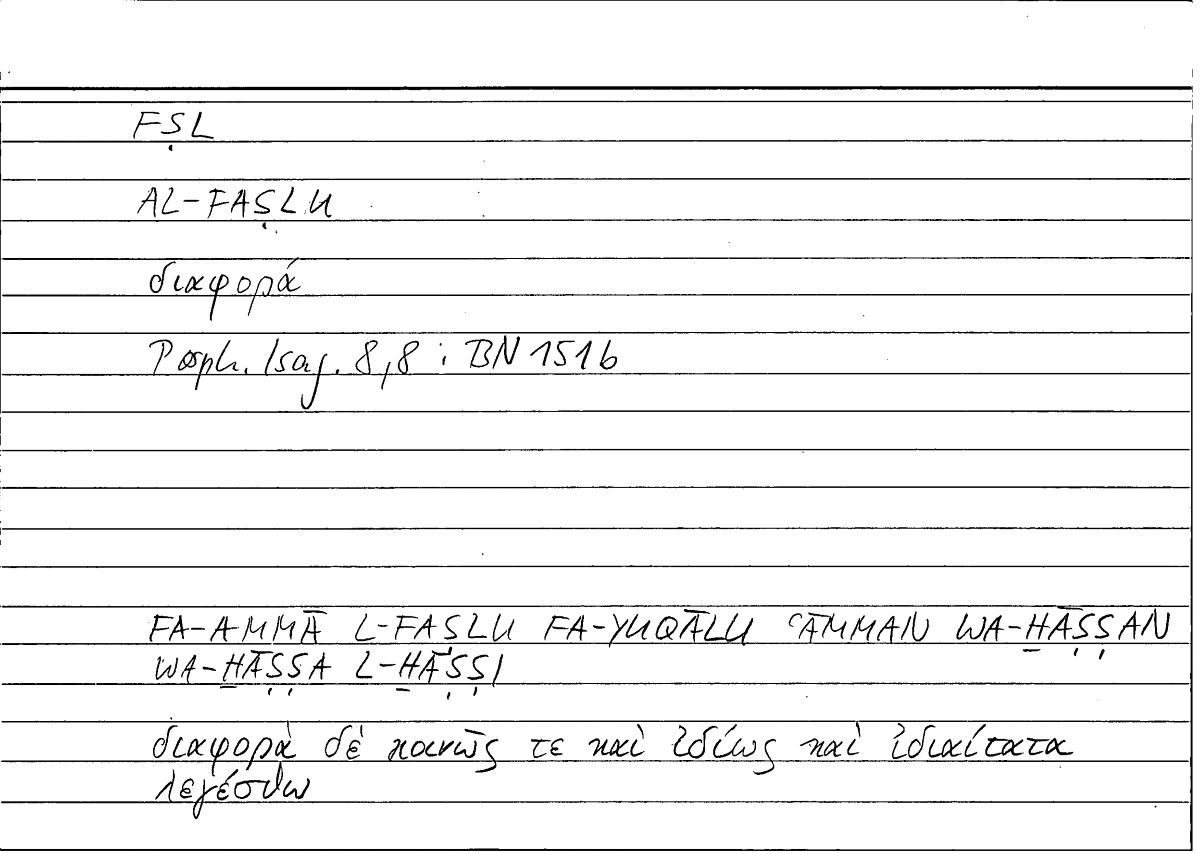 FṢL
AL-FAṢLU
διαφορά
Porph. Isag. 8,8 : BN 151b
FA-AMMĀ L-FAṢLU FA-YUQĀLU ʿĀMMAN WA-ḪĀṢṢAN
WA-ḪĀṢṢA L-ḪĀṢṢI
διαφορὰ δὲ κοινῶς τε καὶ ἰδίως καὶ ἰδιαίτατα
λεγέσθω